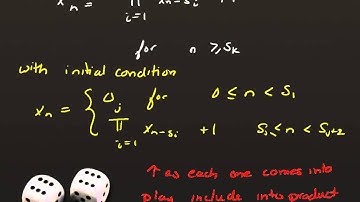 x_n = ∏_{i=1} x_{n-s_i} + 1
for n ≥ s_k
with initial condition
x_n = { 0 for 0 ≤ n < s_1
∏_{i=1}^{j} x_{n-s_i} + 1 s_j ≤ n < s_{j+2}
↑ as each one comes into
play include into product